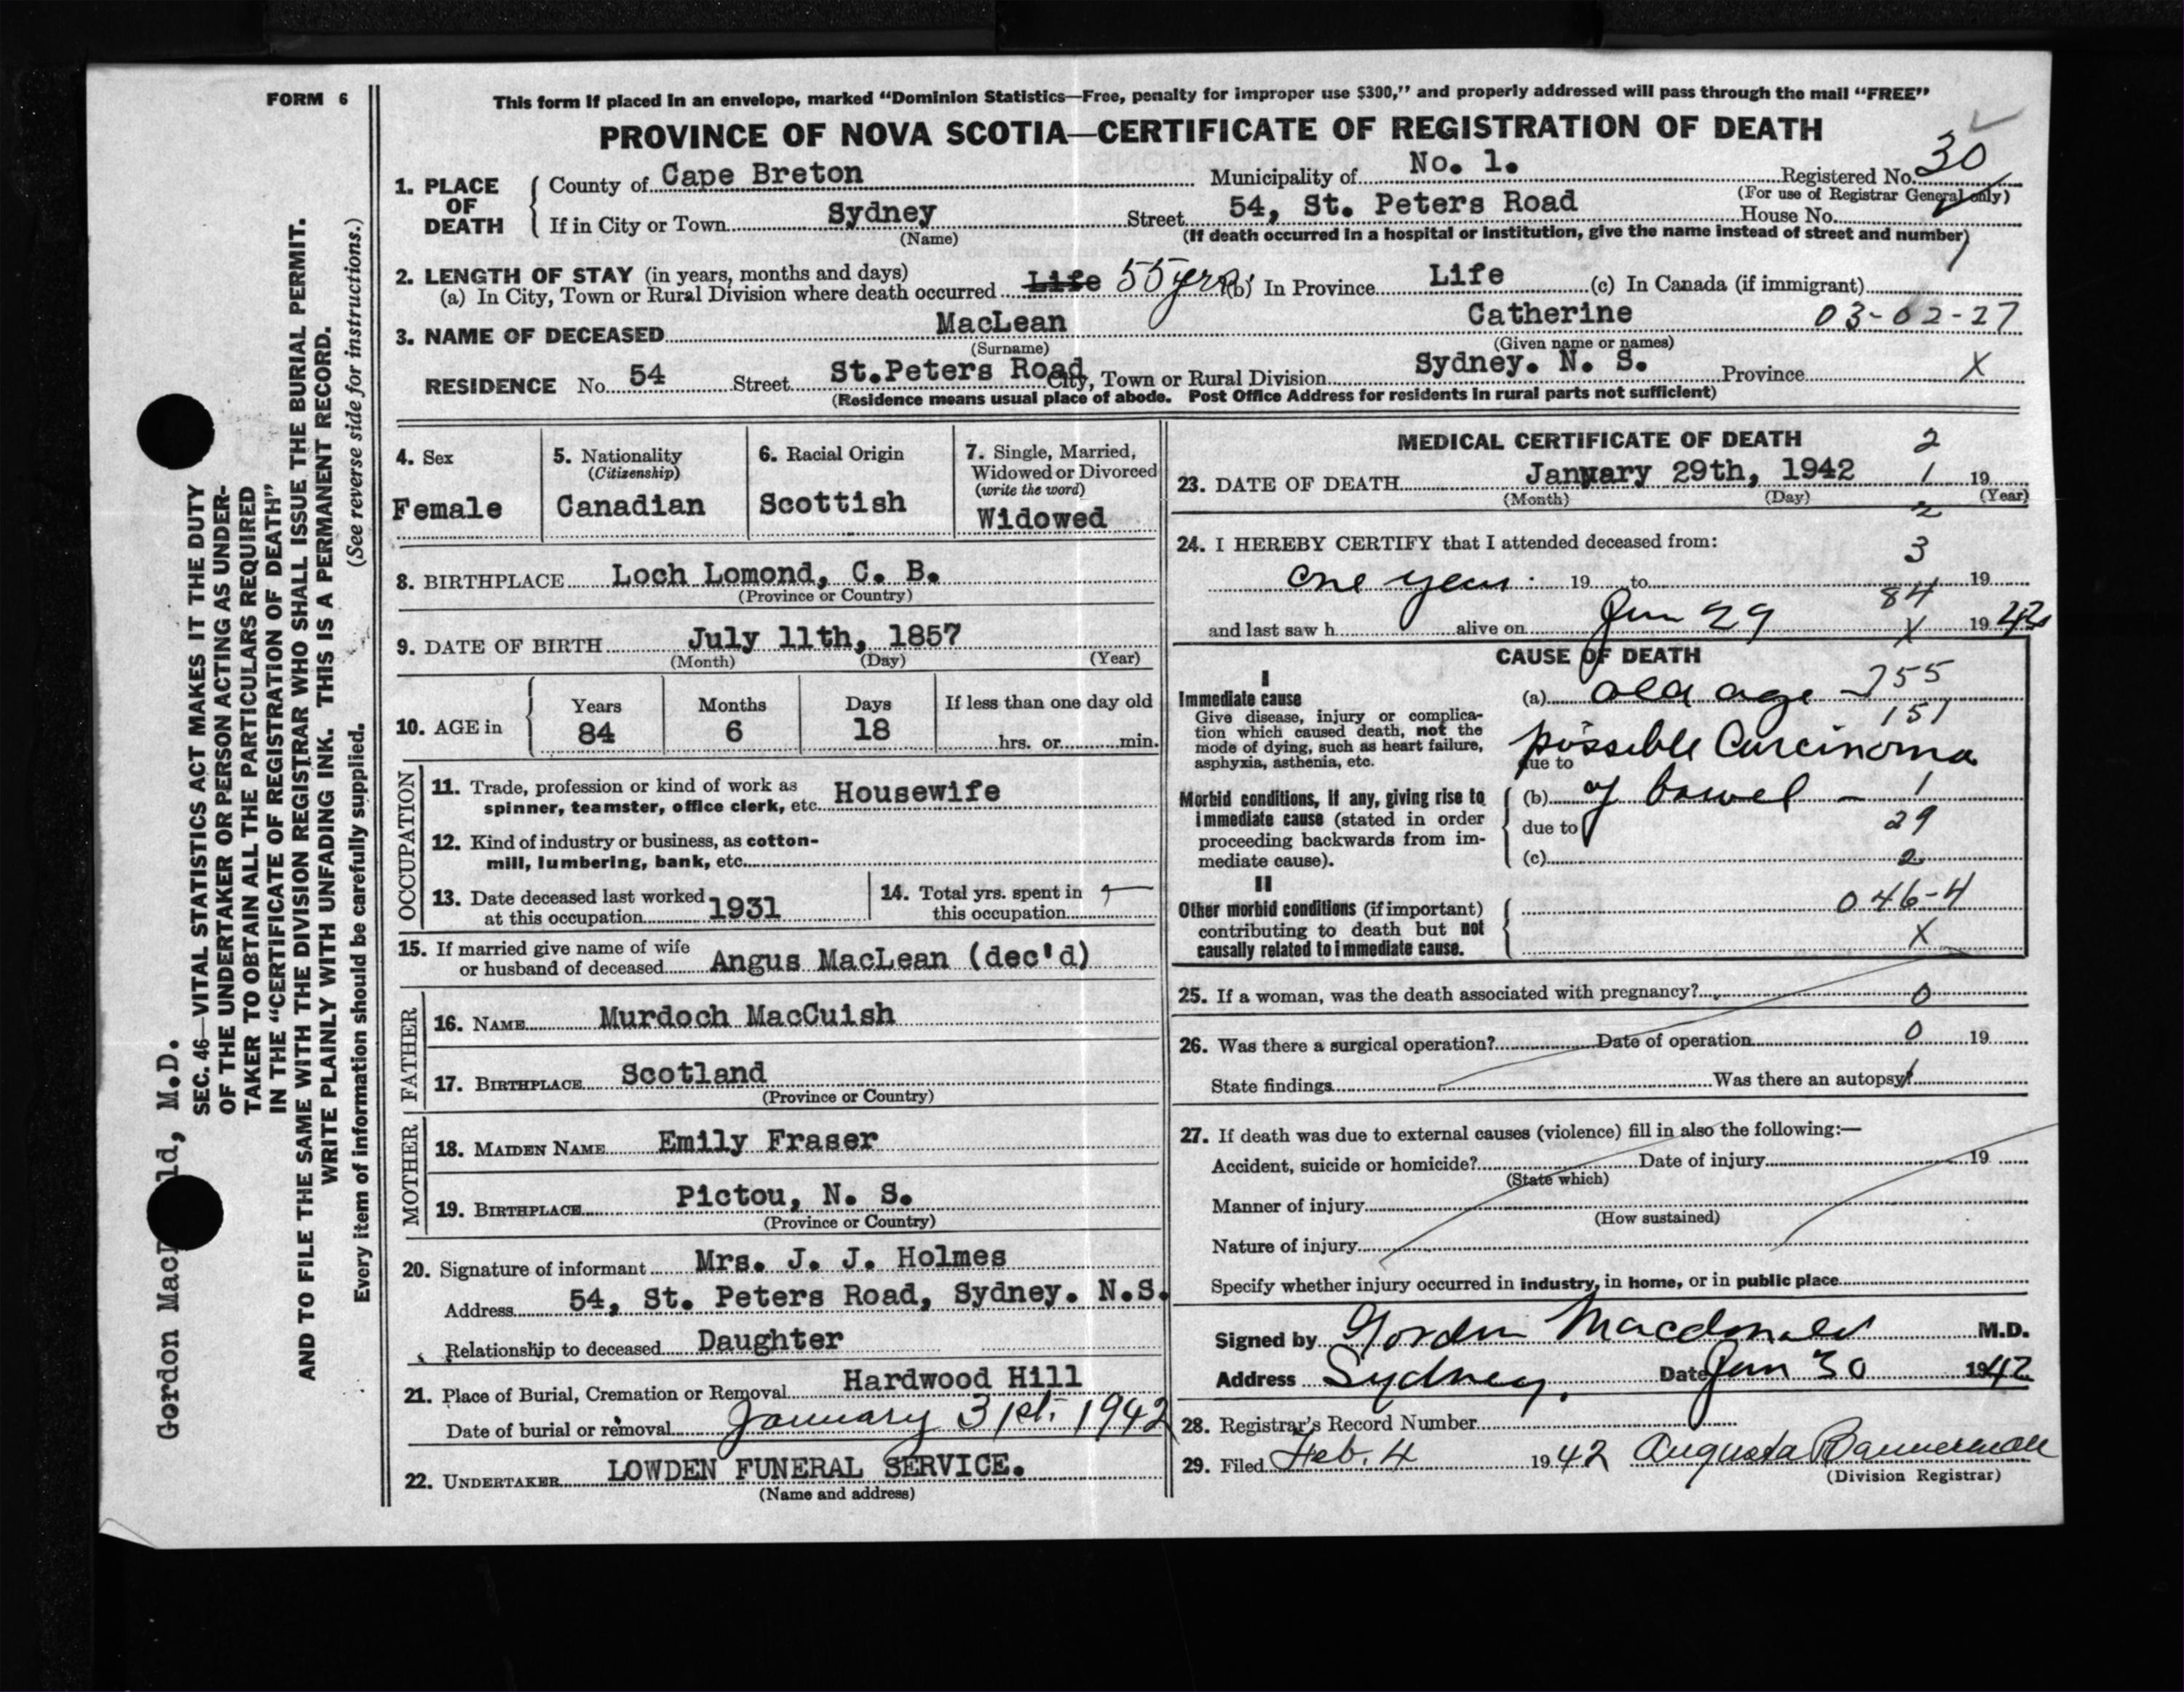 FORM 6
This form if placed in an envelope, marked “Dominion Statistics—Free, penalty for improper use $300,” and properly addressed will pass through the mail “FREE”
PROVINCE OF NOVA SCOTIA—CERTIFICATE OF REGISTRATION OF DEATH
1. PLACE OF DEATH
County of Cape Breton Municipality of No. 1. Registered No. 30
(For use of Registrar General only)
If in City or Town Sydney Street 54, St. Peters Road House No.
(Name) (If death occurred in a hospital or institution, give the name instead of street and number)
2. LENGTH OF STAY (in years, months and days)
(a) In City, Town or Rural Division where death occurred Life 55 yrs (b) In Province Life (c) In Canada (if immigrant)
3. NAME OF DECEASED MacLean Catherine 03-02-27
(Surname) (Given name or names)
RESIDENCE No. 54 Street St.Peters Road City, Town or Rural Division Sydney. N. S. Province X
(Residence means usual place of abode. Post Office Address for residents in rural parts not sufficient)
4. Sex
Female
5. Nationality
(Citizenship)
Canadian
6. Racial Origin
Scottish
7. Single, Married,
Widowed or Divorced
(write the word)
Widowed
8. BIRTHPLACE Loch Lomond, C. B.
(Province or Country)
9. DATE OF BIRTH July 11th, 1857
(Month) (Day) (Year)
10. AGE in
Years Months Days If less than one day old
84 6 18 hrs. or min.
OCCUPATION
11. Trade, profession or kind of work as
spinner, teamster, office clerk, etc. Housewife
12. Kind of industry or business, as cotton-
mill, lumbering, bank, etc.
13. Date deceased last worked
at this occupation 1931
14. Total yrs. spent in
this occupation
15. If married give name of wife
or husband of deceased Angus MacLean (dec'd)
FATHER
16. NAME Murdoch MacCuish
17. BIRTHPLACE Scotland
(Province or Country)
MOTHER
18. MAIDEN NAME Emily Fraser
19. BIRTHPLACE Pictou, N. S.
(Province or Country)
20. Signature of informant Mrs. J. J. Holmes
Address 54, St. Peters Road, Sydney. N.S.
Relationship to deceased Daughter
21. Place of Burial, Cremation or Removal Hardwood Hill
Date of burial or removal January 31st, 1942
22. UNDERTAKER LOWDEN FUNERAL SERVICE.
(Name and address)
MEDICAL CERTIFICATE OF DEATH 2
23. DATE OF DEATH January 29th, 1942 1 19
(Month) (Day) (Year)
2
24. I HEREBY CERTIFY that I attended deceased from: 3
one year 19 to 19
84
and last saw h alive on Jan 29 X 1942
CAUSE OF DEATH
I
Immediate cause
Give disease, injury or complica-
tion which caused death, not the
mode of dying, such as heart failure,
asphyxia, asthenia, etc.
(a) old age - 255
151
possible Carcinoma
due to
Morbid conditions, if any, giving rise to
immediate cause (stated in order
proceeding backwards from im-
mediate cause).
(b) of bowel - 1
due to 29
(c) 2
II
Other morbid conditions (if important)
contributing to death but not
causally related to immediate cause.
046-4
X
25. If a woman, was the death associated with pregnancy? 0
26. Was there a surgical operation? Date of operation 0 19
State findings Was there an autopsy? 1
27. If death was due to external causes (violence) fill in also the following:—
Accident, suicide or homicide? Date of injury 19
(State which)
Manner of injury
(How sustained)
Nature of injury
Specify whether injury occurred in industry, in home, or in public place
Signed by Gordon Macdonald M.D.
Address Sydney. Date Jan 30 1942
28. Registrar's Record Number
29. Filed Feb. 4 1942 Augusta Bannerman
(Division Registrar)
Gordon MacD ld, M.D.
SEC. 46—VITAL STATISTICS ACT MAKES IT THE DUTY
OF THE UNDERTAKER OR PERSON ACTING AS UNDER-
TAKER TO OBTAIN ALL THE PARTICULARS REQUIRED
IN THE “CERTIFICATE OF REGISTRATION OF DEATH”
AND TO FILE THE SAME WITH THE DIVISION REGISTRAR WHO SHALL ISSUE THE BURIAL PERMIT.
WRITE PLAINLY WITH UNFADING INK. THIS IS A PERMANENT RECORD.
Every item of information should be carefully supplied. (See reverse side for instructions.)